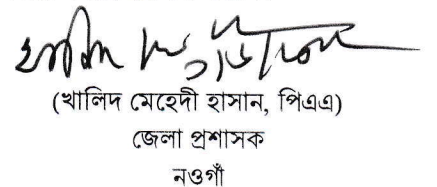 (খালিদ মেহেদী হাসান, পিএএ)
জেলা প্রশাসক
নওগাঁ